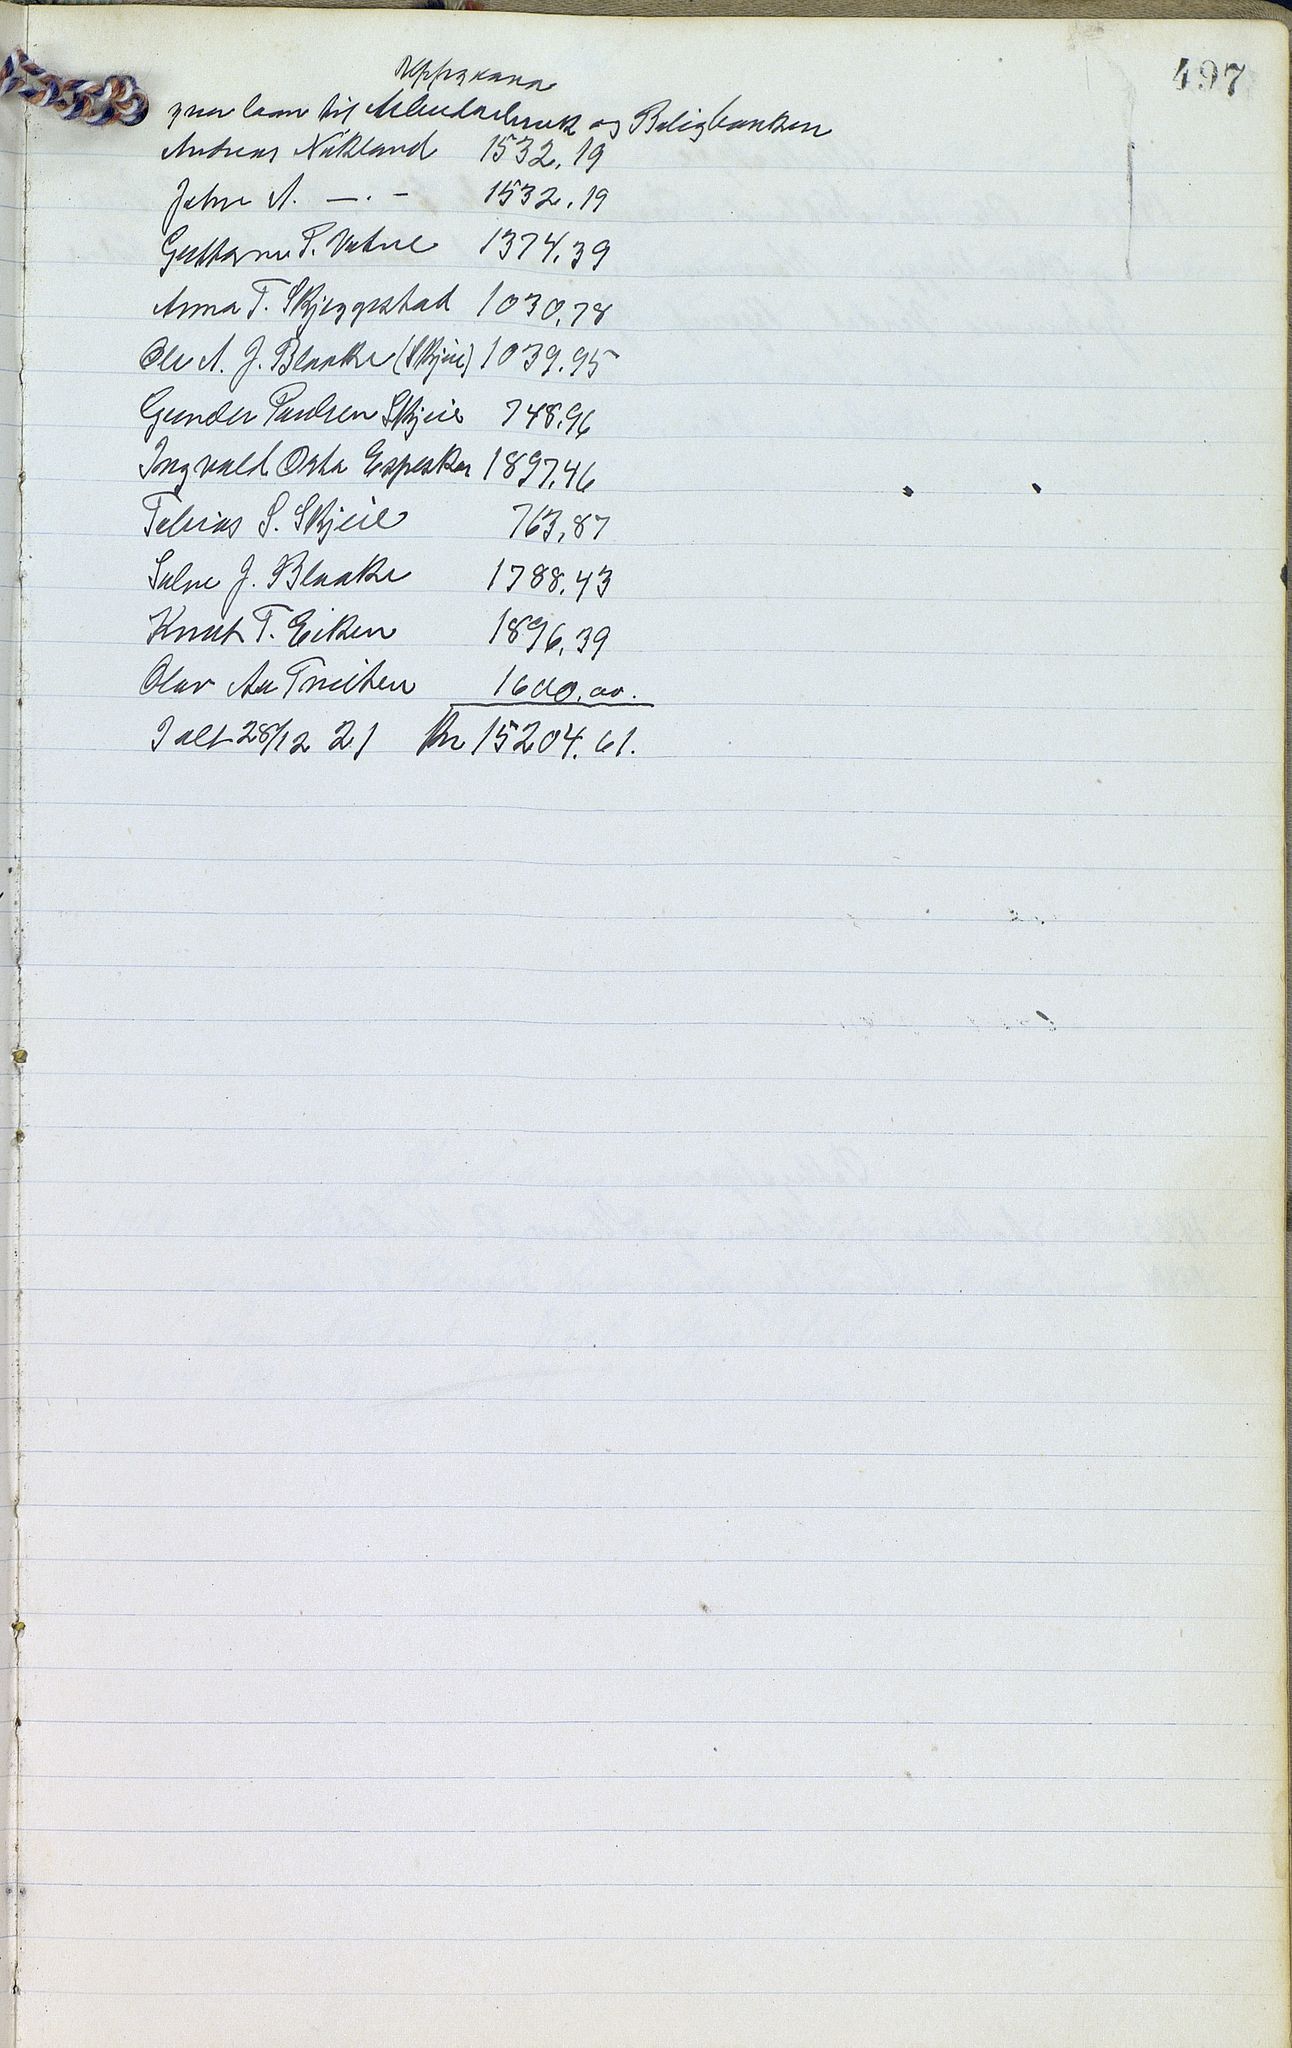 497
Oppgave
yver laan til Arbeidarbruk og Boligbanken
Andreas Nakland 1532,19
Jahn A. —.- 1532,19
Guttorm T. Vatne 1374,39
Anna T. Skjeggestad 1030,78
Ole A. J. Blaake (Skjeie) 1039.95
Gunder Paulsen Skjeie 748,96
Ingvald Osta Espesker 1897,46
Tobias S. Skjeie 763,87
Salve J. Blaake 1788,43
Knut T. Eiken 1896,39
Olav Aa Tveiten 1600,00.
Ialt 28/12 21 Kr 15204.61.